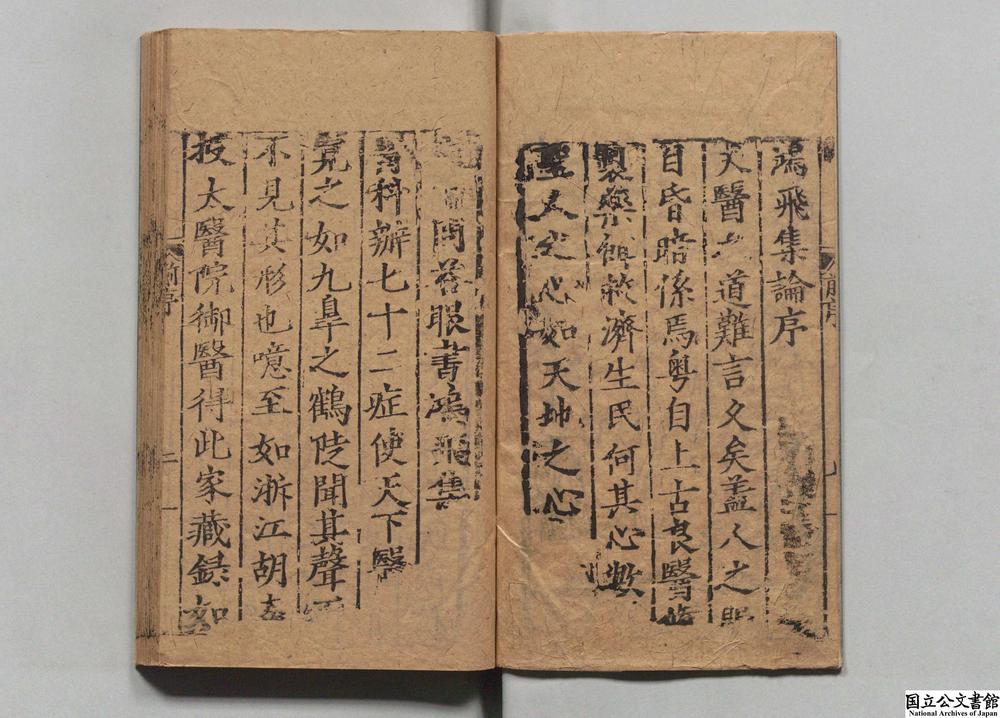 鴻飛集論序
夫醫之道難言久矣蓋人之
目昏暗係焉粤自上古良醫
製藥餌救濟生民何其心歟
聖人之心如天地之心
問答眼書鴻飛集
科辦七十二症使天下醫
覓之如九皐之鶴陡聞其聲而
不見其形也噫至如浙江胡
授太醫院御醫得此家藏録如
前序
一
前序
二
国立公文書館
National Archives of Japan